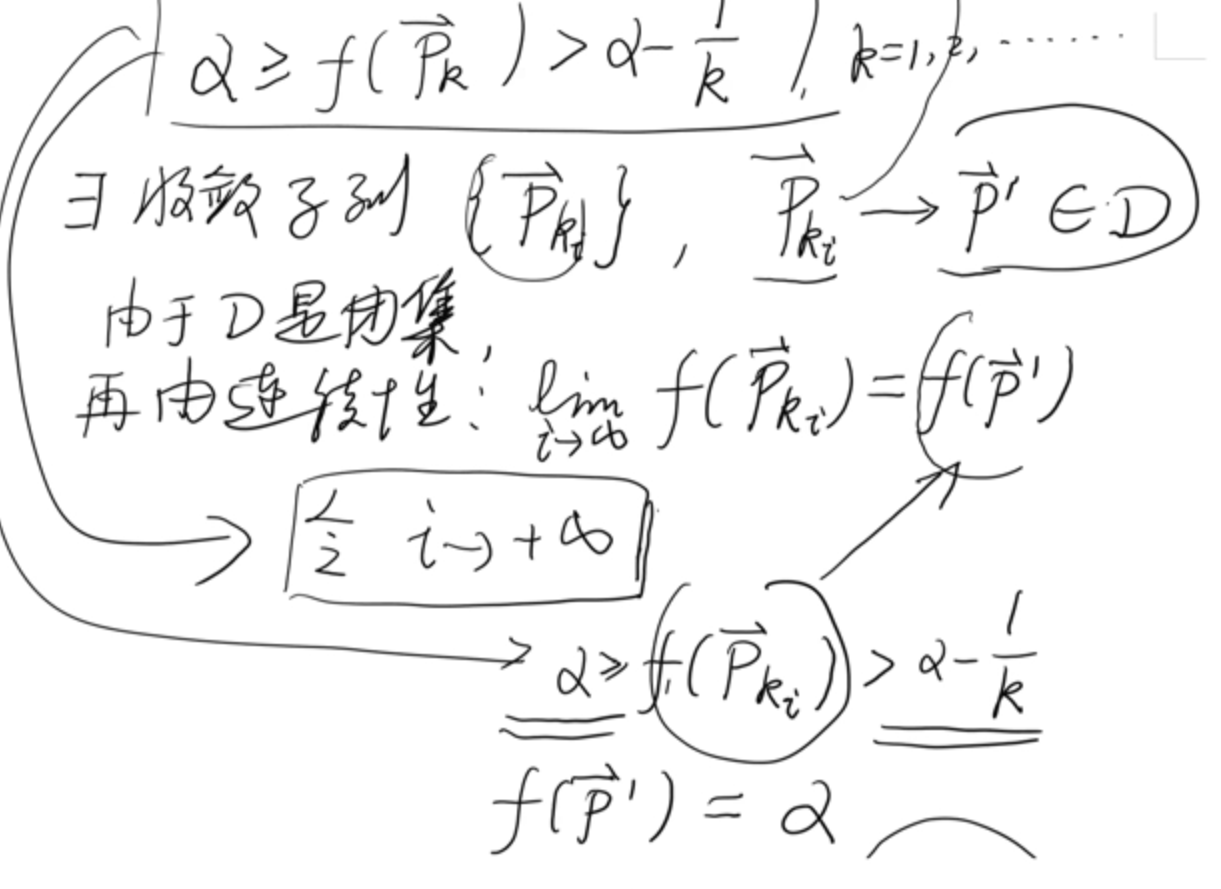 α ≥ f(P⃗_k) > α - 1/k, k=1,2,……
∃ 收敛子列 {P⃗_{k_i}}, P⃗_{k_i} → P⃗' ∈ D
由于 D 是闭集,
再由连续性: lim_{i→∞} f(P⃗_{k_i}) = f(P⃗')
令 i→+∞
α ≥ f(P⃗_{k_i}) > α - 1/k
f(P⃗') = α